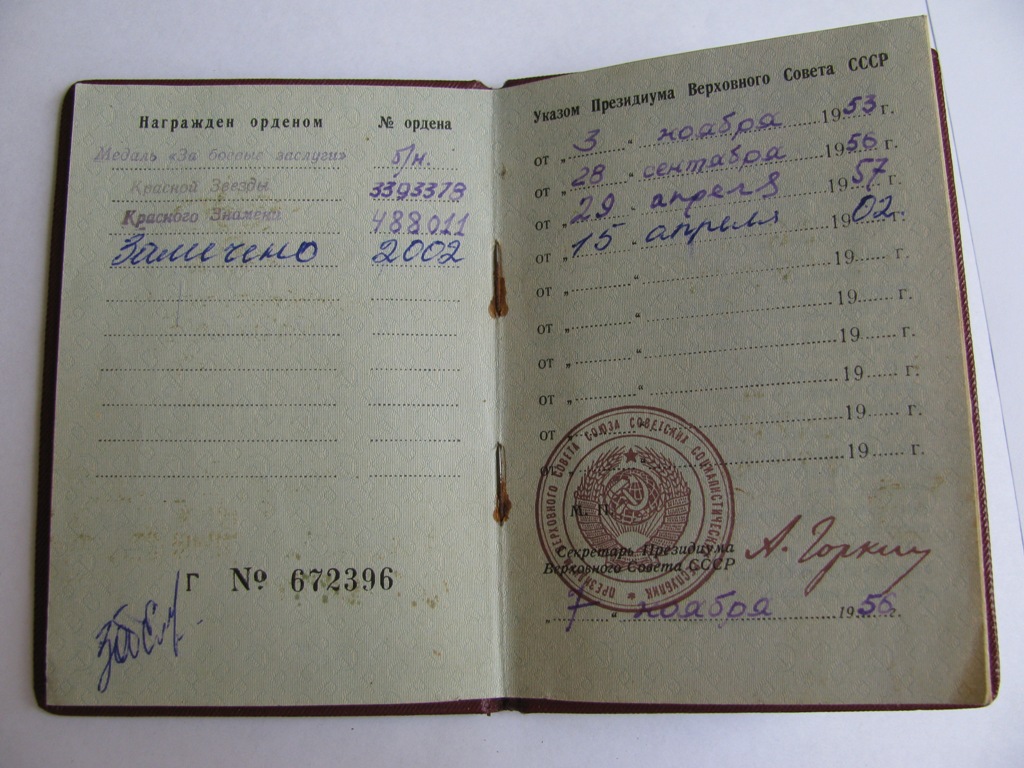 Награжден орденом № ордена
Медаль «За боевые заслуги» б/н.
Красной Звезды 3393378
Красного Знамени 488011
Замечено 2002
Г № 672396
Указом Президиума Верховного Совета СССР
от „ 3 “ ноября 1953 г.
от „ 28 “ сентября 1956 г.
от „ 29 “ апреля 1957 г.
от „ 15 “ апреля 19 02 г.
от „ “ 19 г.
от „ “ 19 г.
от „ “ 19 г.
от „ “ 19 г.
от „ “ 19 г.
от „ “ 19 г.
М. П.
Секретарь Президиума
Верховного Совета СССР
А. Горкин
„ 7 “ ноября 1956 г.
ВЕРХОВНОГО СОВЕТА СОЮЗА СОВЕТСКИХ СОЦИАЛИСТИЧЕСКИХ